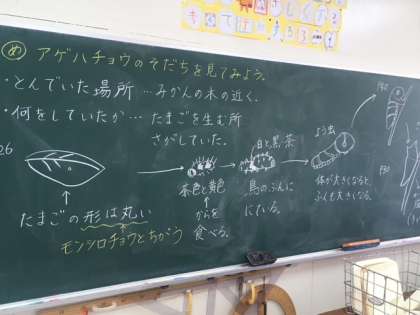 め アゲハチョウのそだちを見てみよう。
・とんでいた場所…みかんの木の近く。
・何をしていたか…たまごを生む所
さがしていた。
P26
たまごの形は丸い
モンシロチョウとちがう
茶色と黄色
からを
食べる。
白と黒・茶
鳥のふんに
にている。
よう虫
体が大きくなると、
ふんも大きくなる。
P30